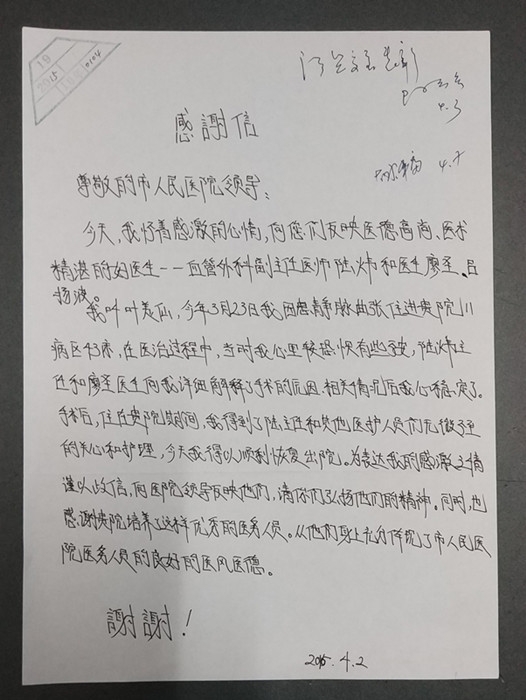 2015
感謝信
尊敬的市人民医院领导：
今天，我怀着感激的心情，向您们反映医德高尚、医术
精湛的好医生--血管外科副主任医师陆炜和医生廖圣、吕
扬波。
我叫叶美仙，今年3月23日我因患静脉曲张住进贵院川
病区43床，在医治过程中，当时我心里较恐惧有些不安，陆炜主
任和廖圣医生向我详细解释了手术的原因相关情况后我心稳定了。
手术后，住在贵院期间，我得到了陆主任和其他医护人员们无微不至
的关心和护理，今天我得以顺利恢复出院。为表达我的感激之情
谨以此信，向医院领导反映他们，请你们弘扬他们的精神。同时，也
感谢贵院培养了这样优秀的医务人员。从他们身上充分体现了市人民医
院医务人员的良好的医风医德。
謝謝！
2015.4.2
4.3
4.7